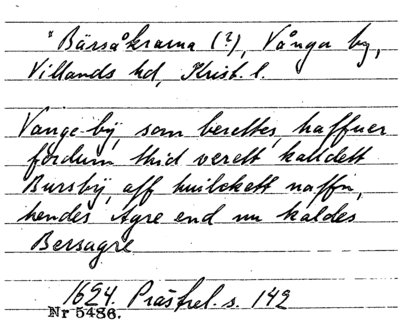 "Bärsåkrarna (?), Vånga by,
Villands hd, Krist. l.
Vånge by, som berettes, haffuer
fordum thid verett kalldett
Bursbÿ, aff huilckett naffn,
hendes Agre end nu kaldes
Bersagre
1624. Prästrel. s. 142
Nr 5486.